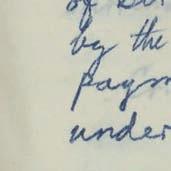 of
by the
paym
under